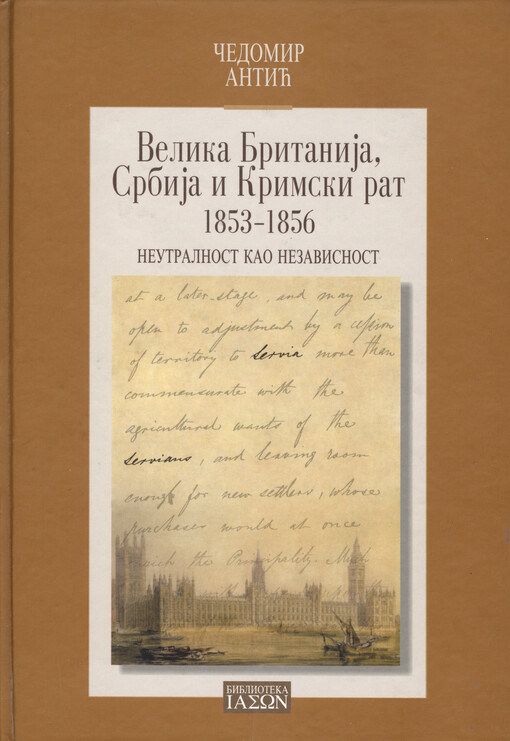 ЧЕДОМИР
АНТИЋ
Велика Британија,
Србија и Кримски рат
1853–1856
НЕУТРАЛНОСТ КАО НЕЗАВИСНОСТ
at a later stage, and may be
open to adjustment by a cession
of territory to Servia more than
commensurate with the
agricultural wants of the
Servians, and leaving room
enough for new settlers, whose
purchases would at once
the Principality.
БИБЛИОТЕКА
ΙΑΣΩΝ